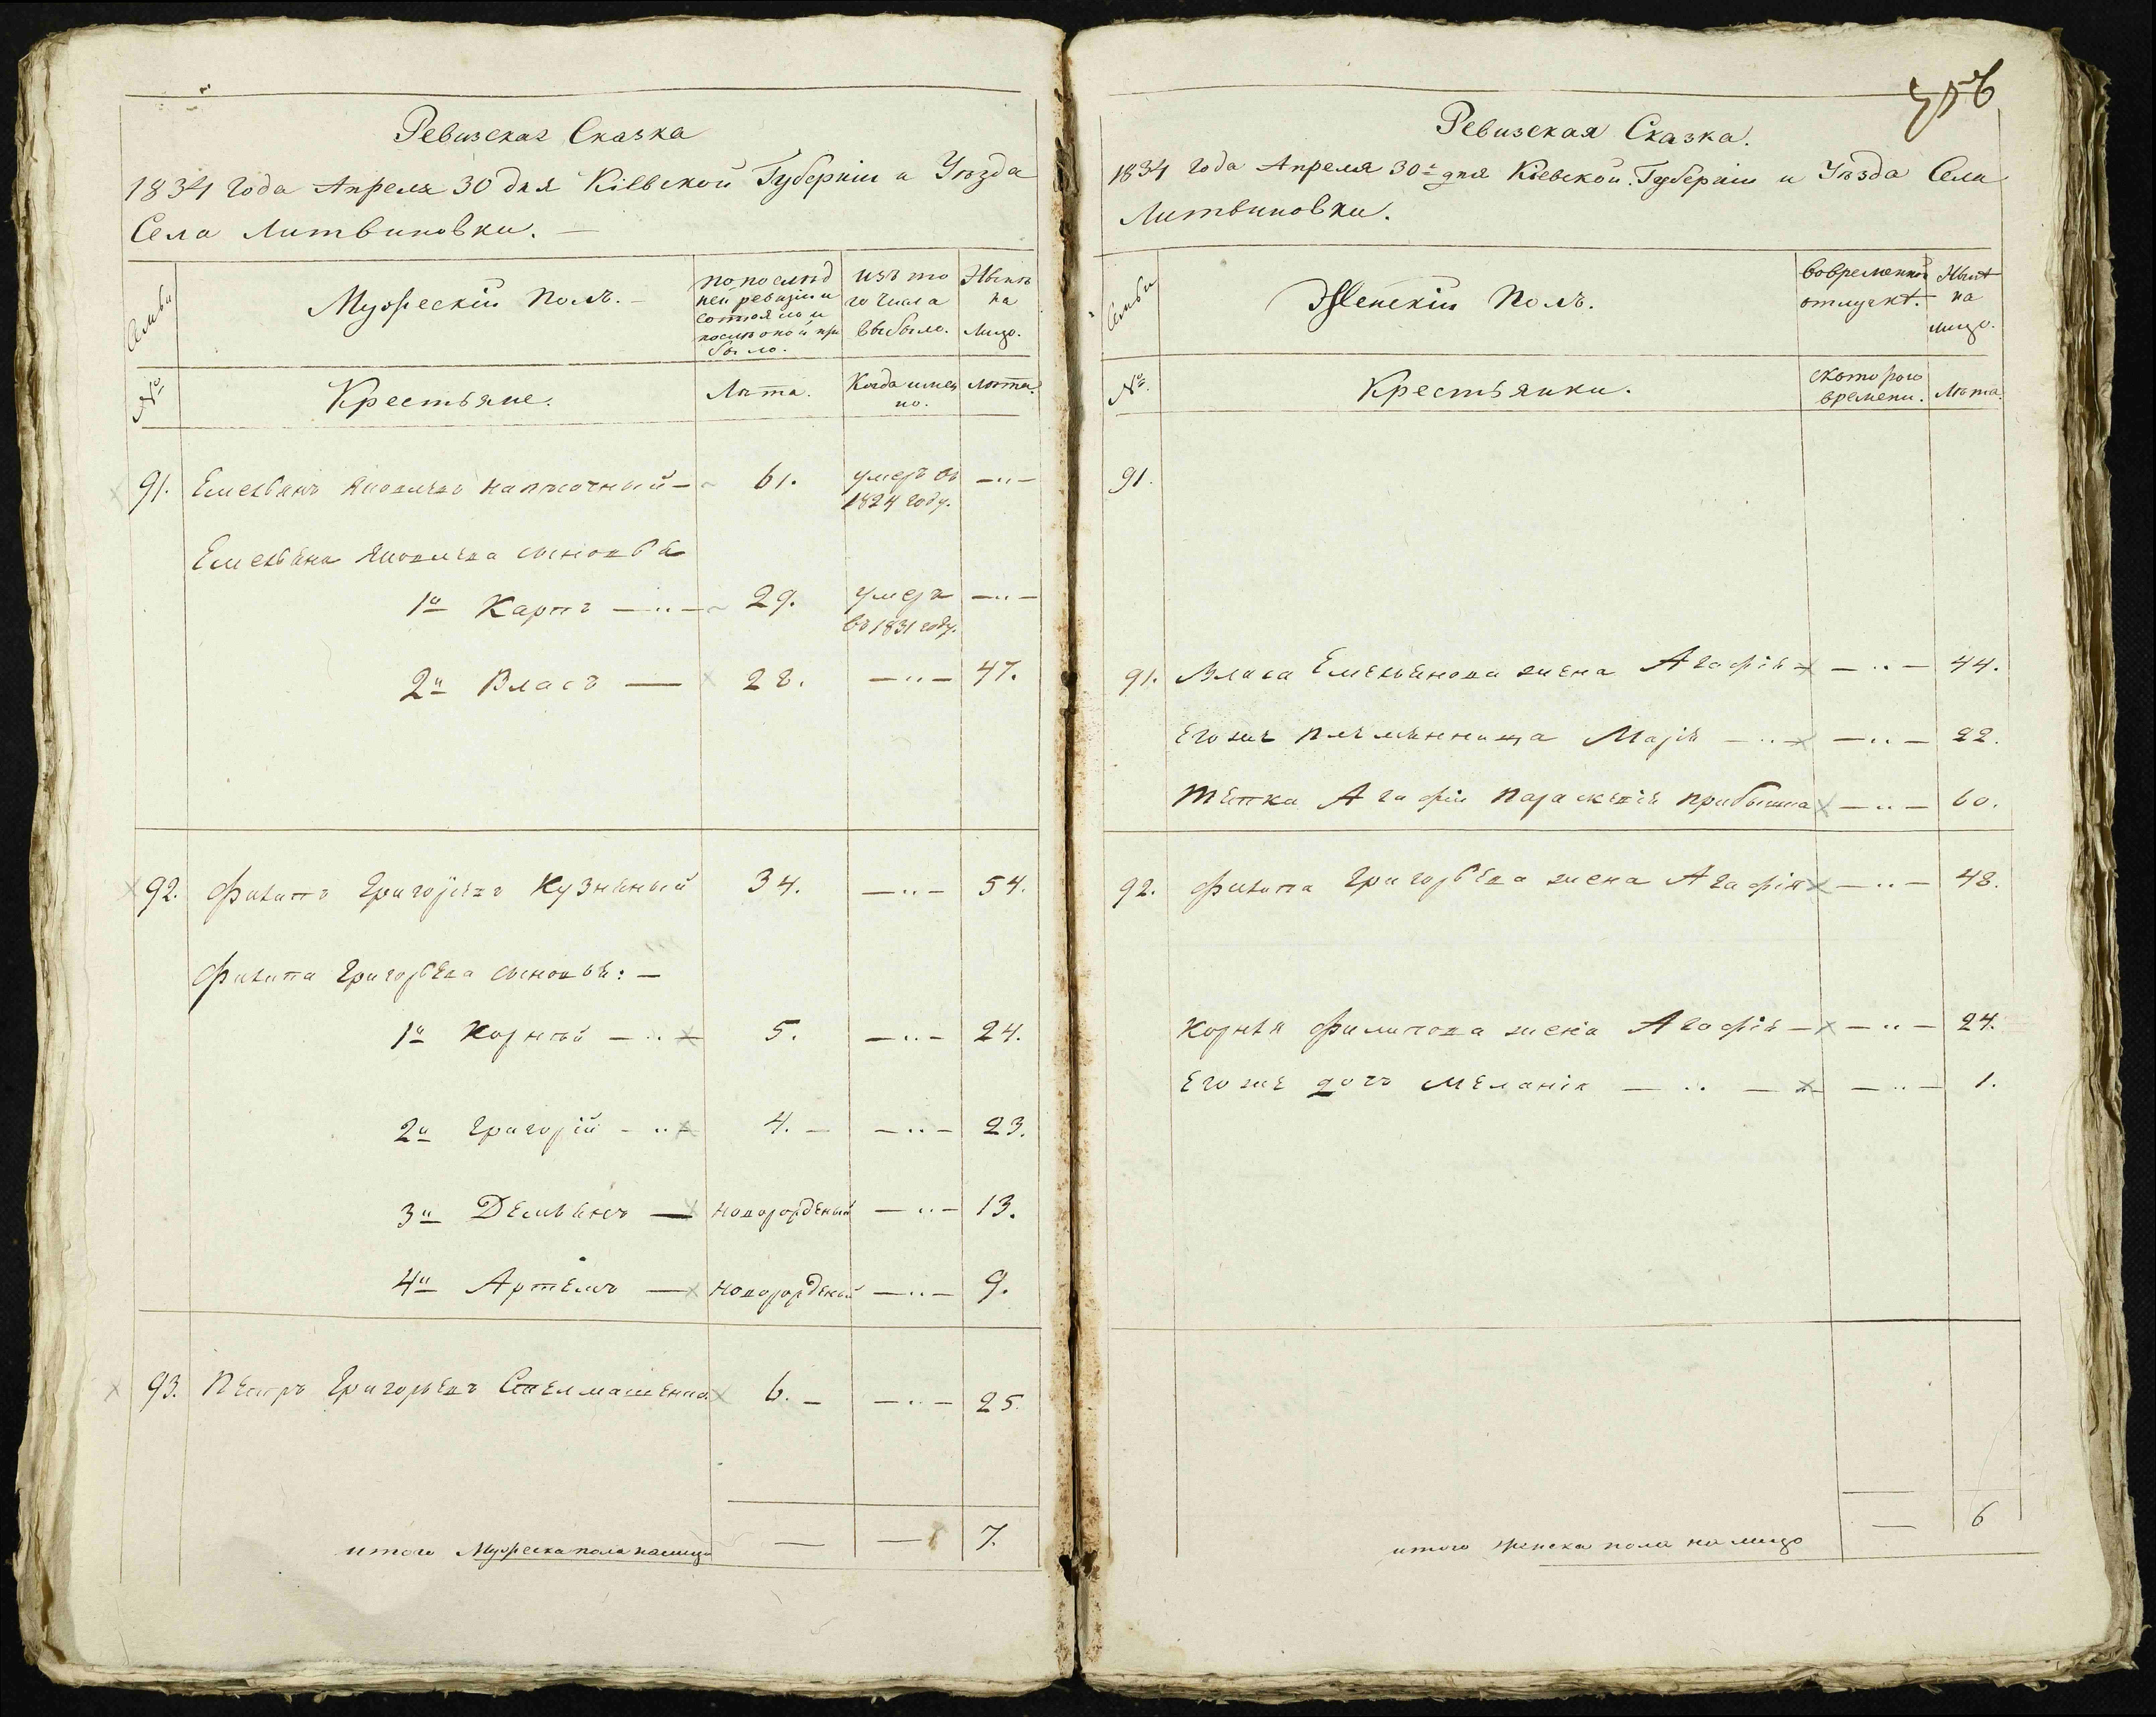 Ревизская Сказка
1834 года Апреля 30 дня Кіевской Губерніи и Уѣзда
Села Литвиновки. —
Семьи
Мужескій Полъ. —
по послѣд
ней ревизіи
состояло и
послѣ оной при
было.
изъ то
го числа
выбыло.
Нынѣ
на
лицо.
№
Крестьяне.
Лѣта.
Когда имен
но.
Лѣта.
91. Емельянъ Яковлевъ — 61. умеръ въ —„—
1824 году.
Емельяна Яковлева сыновья
1й Карпъ —„— 29. умеръ —„—
въ 1831 году.
2й Власъ — 28. —„— 47.
92. Филипъ Григорьевъ Кузненый 34. —„— 54.
Филипа Григорьева сыновья: —
1й Корней —„— 5. —„— 24.
2й Григорій —„— 4. — —„— 23.
3й Демьянъ — новорожденый —„— 13.
4й Артемъ — новорожденый —„— 9.
93. Петръ Григорьевъ Стелмашенко 6. — —„— 25.
итого Мужеска пола налицо — — 7.
Ревизская Сказка.
1834 года Апреля 30 дня Кіевской Губерніи и Уѣзда Села
Литвиновки.
Семьи
Женскій Полъ.
вовременной
отлучкѣ.
Нынѣ
на
лицо.
№
Крестьянки.
скоторого
времени.
Лѣта.
91.
91. Власа Емельянова жена Агафія —„— 44.
Его же племянница Марія —„— —„— 22.
Тетка Агафіи Параскевія прибывша —„— 60.
92. Филипа Григорьева жена Агафія —„— 48.
Корнея Филипова жена Агафія — —„— 24.
Его же дочь Меланія —„— —„— 1.
итого женска пола на лицо — 6